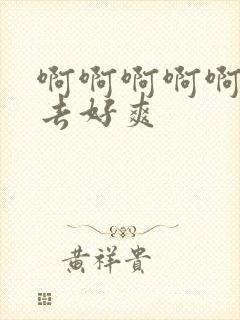 啊啊啊啊啊
去好爽
黄祥贵